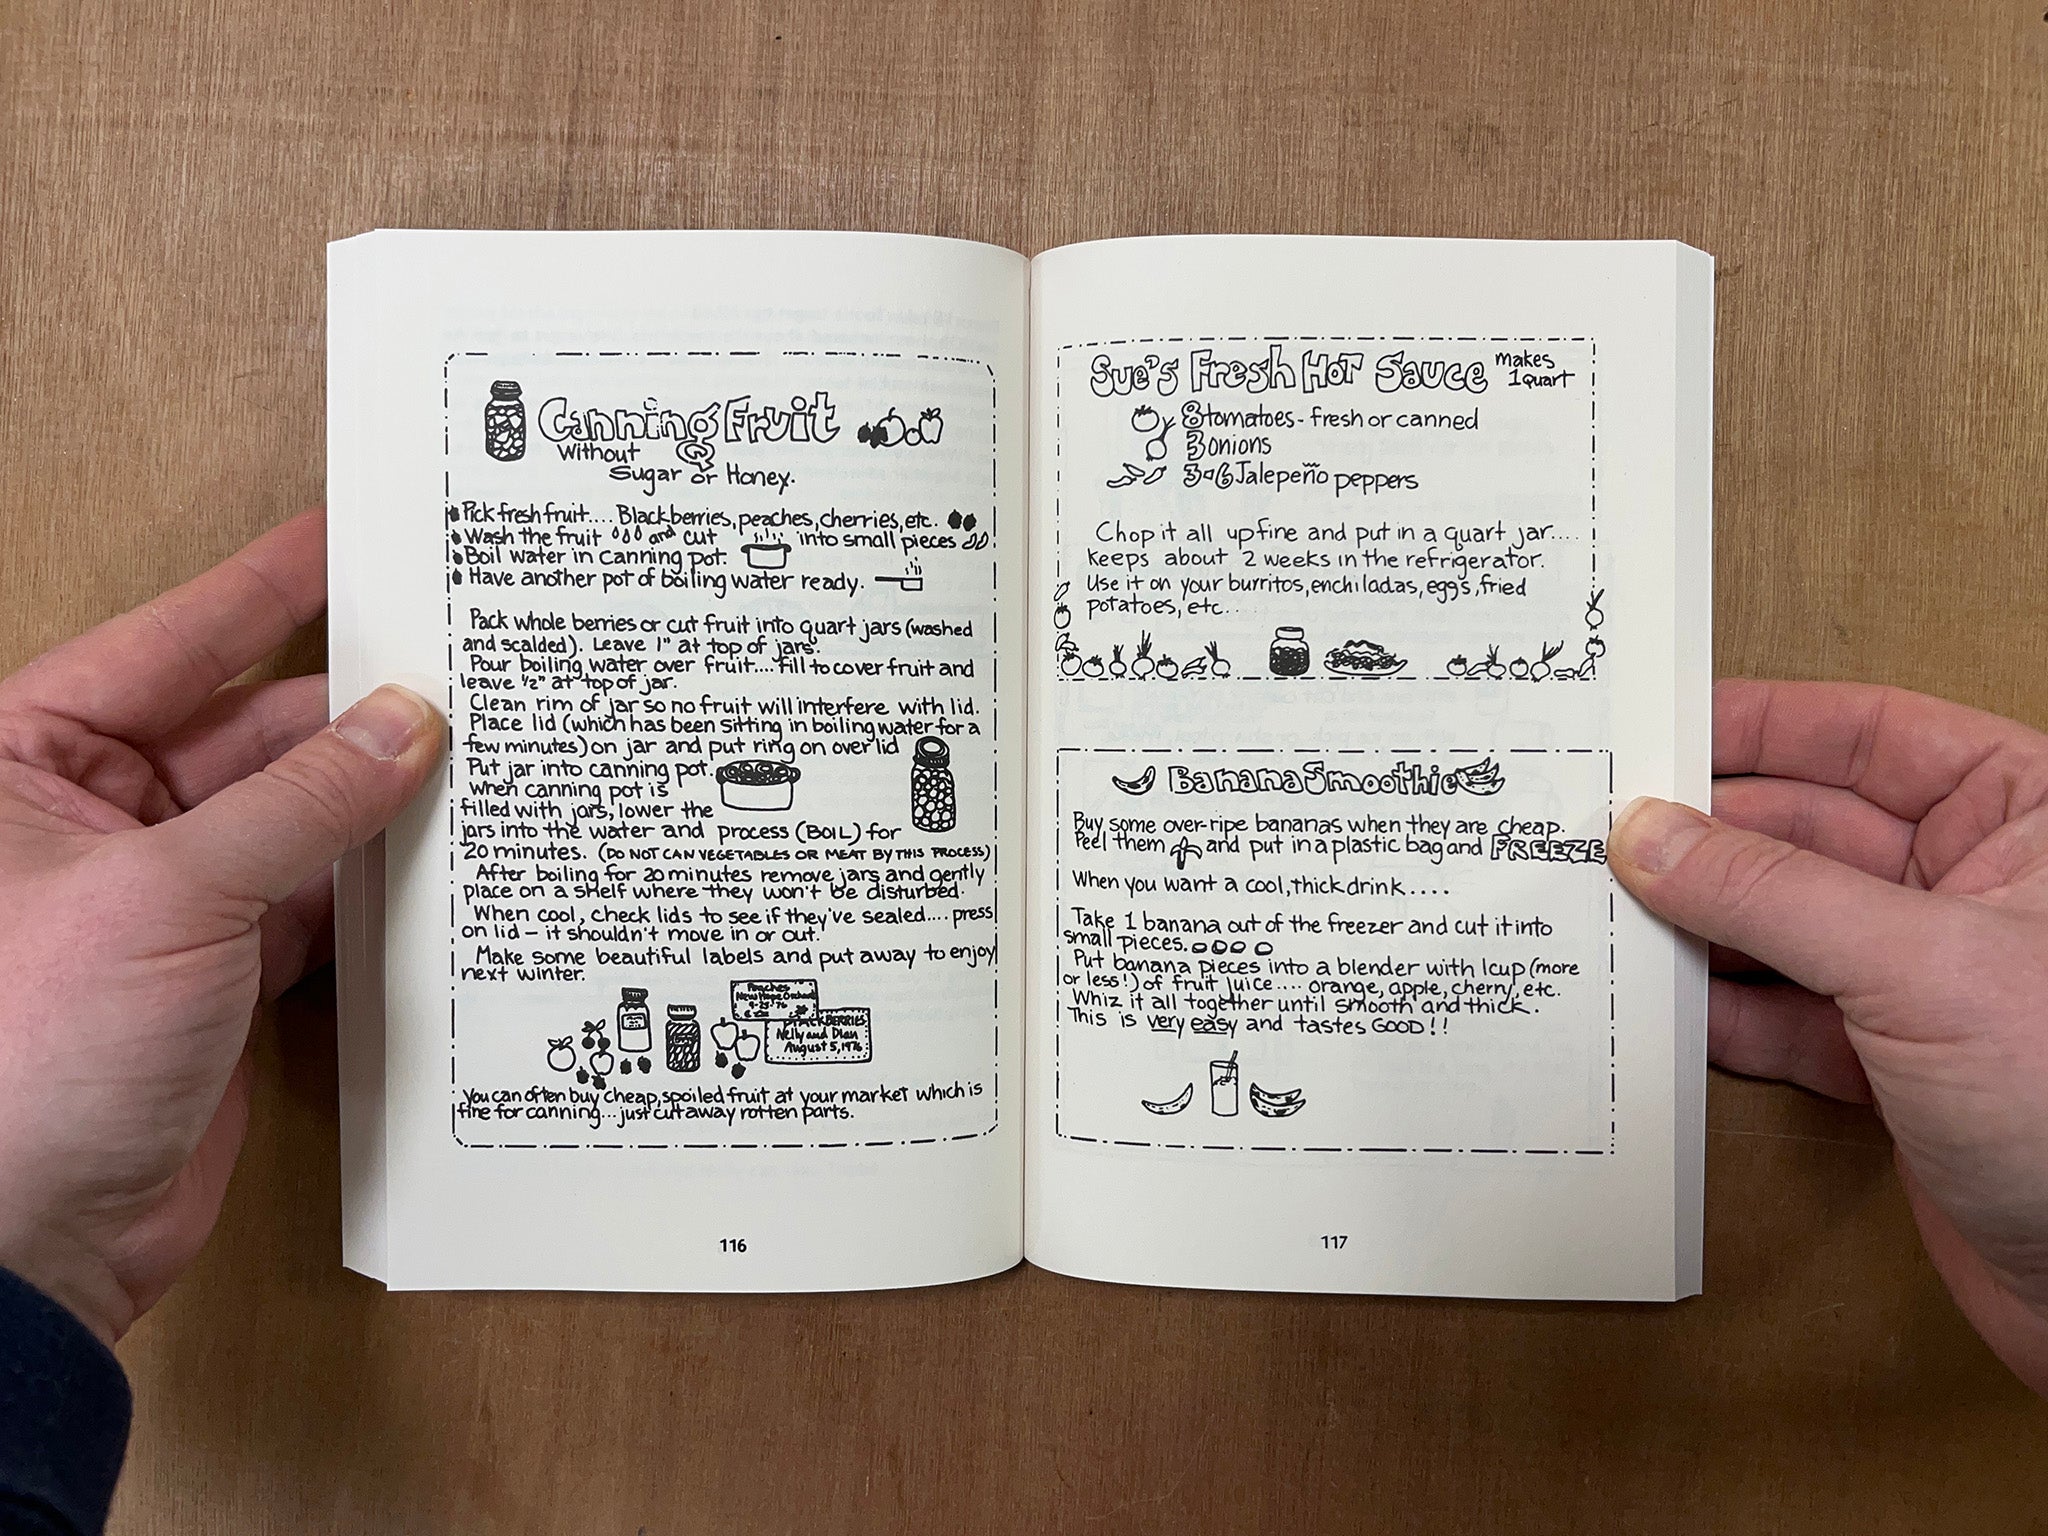 Canning Fruit
Without
Sugar or Honey.
Pick fresh fruit.... Blackberries, peaches, cherries, etc.
Wash the fruit and cut into small pieces
Boil water in canning pot.
Have another pot of boiling water ready.
Pack whole berries or cut fruit into quart jars (washed
and scalded). Leave 1" at top of jars.
Pour boiling water over fruit.... fill to cover fruit and
leave ½" at top of jar.
Clean rim of jar so no fruit will interfere with lid.
Place lid (which has been sitting in boiling water for a
few minutes) on jar and put ring on over lid
Put jar into canning pot.
When canning pot is
filled with jars, lower the
jars into the water and process (BOIL) for
20 minutes. (DO NOT CAN VEGETABLES OR MEAT BY THIS PROCESS)
After boiling for 20 minutes remove jars and gently
place on a shelf where they won't be disturbed.
When cool, check lids to see if they've sealed.... press
on lid – it shouldn't move in or out.
Make some beautiful labels and put away to enjoy
next winter.
Peaches
New Hope Orchard
9-25-'76
BLACKBERRIES
Nelly and Dian
August 5, 1976
You can often buy cheap, spoiled fruit at your market which is
fine for canning... just cut away rotten parts.
116
Sue's Fresh Hot Sauce makes
1 quart
8 tomatoes - fresh or canned
3 onions
3-6 Jalepeño peppers
Chop it all up fine and put in a quart jar....
Keeps about 2 weeks in the refrigerator.
Use it on your burritos, enchiladas, eggs, fried
potatoes, etc...
Banana Smoothie
Buy some over-ripe bananas when they are cheap.
Peel them and put in a plastic bag and FREEZE
When you want a cool, thick drink....
Take 1 banana out of the freezer and cut it into
small pieces.
Put banana pieces into a blender with 1 cup (more
or less!) of fruit juice.... orange, apple, cherry, etc.
Whiz it all together until smooth and thick.
This is very easy and tastes GOOD!!
117